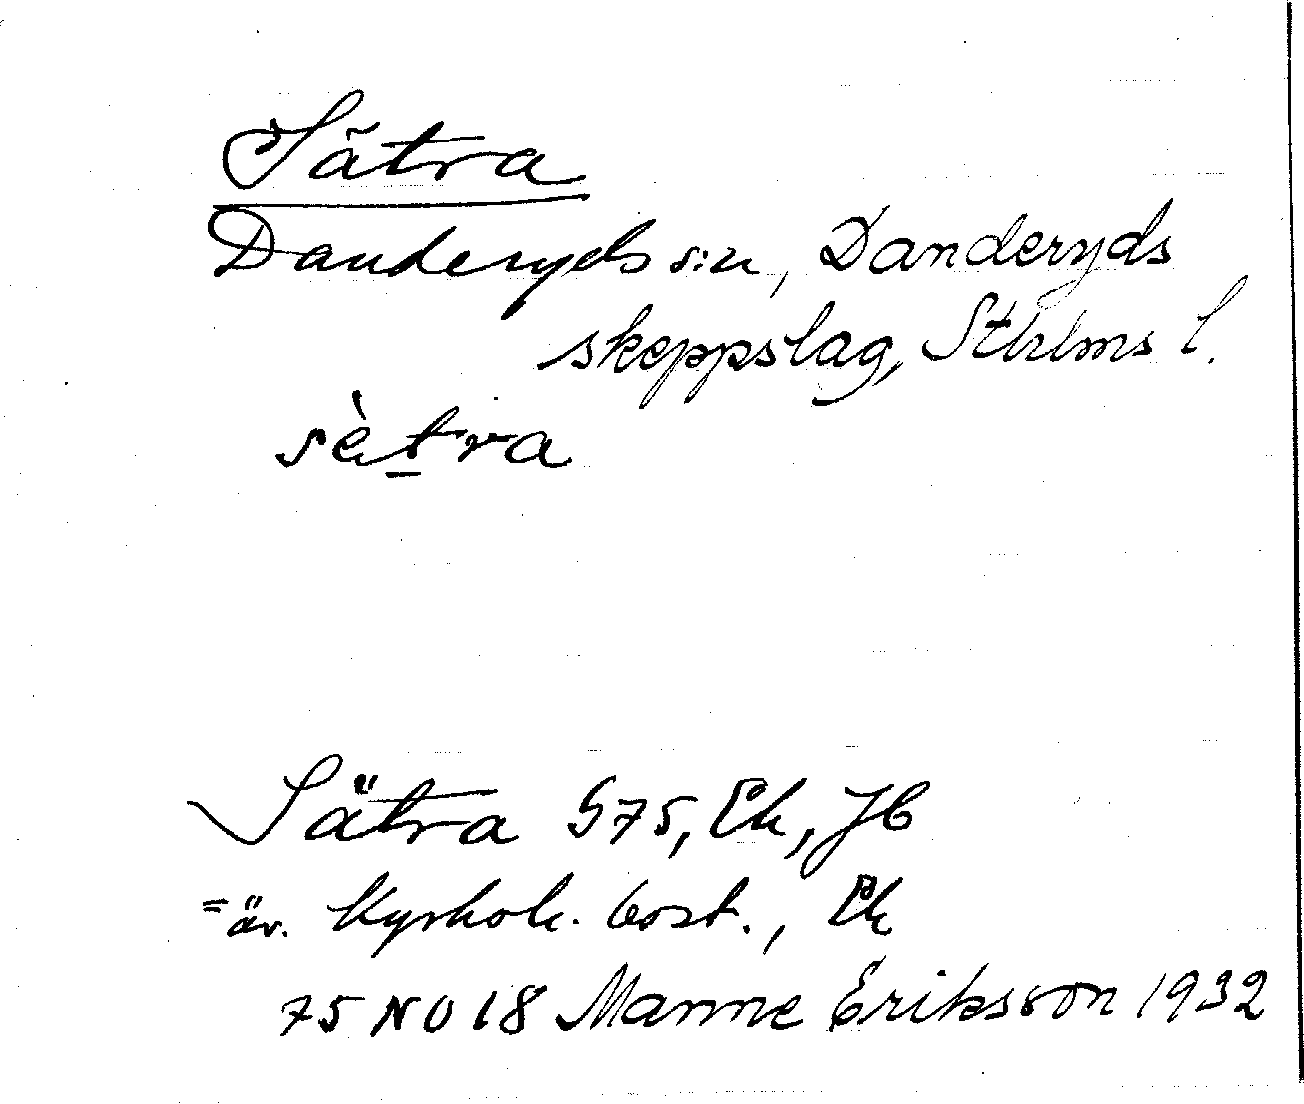 Sätra
Danderyds s:n, Danderyds
skeppslag, Sthlms l.
sètra
Sätra S75, Ek, JC
= äv. Kyrkoh. bost., Ek
75 NO 18 Manne Eriksson 1932